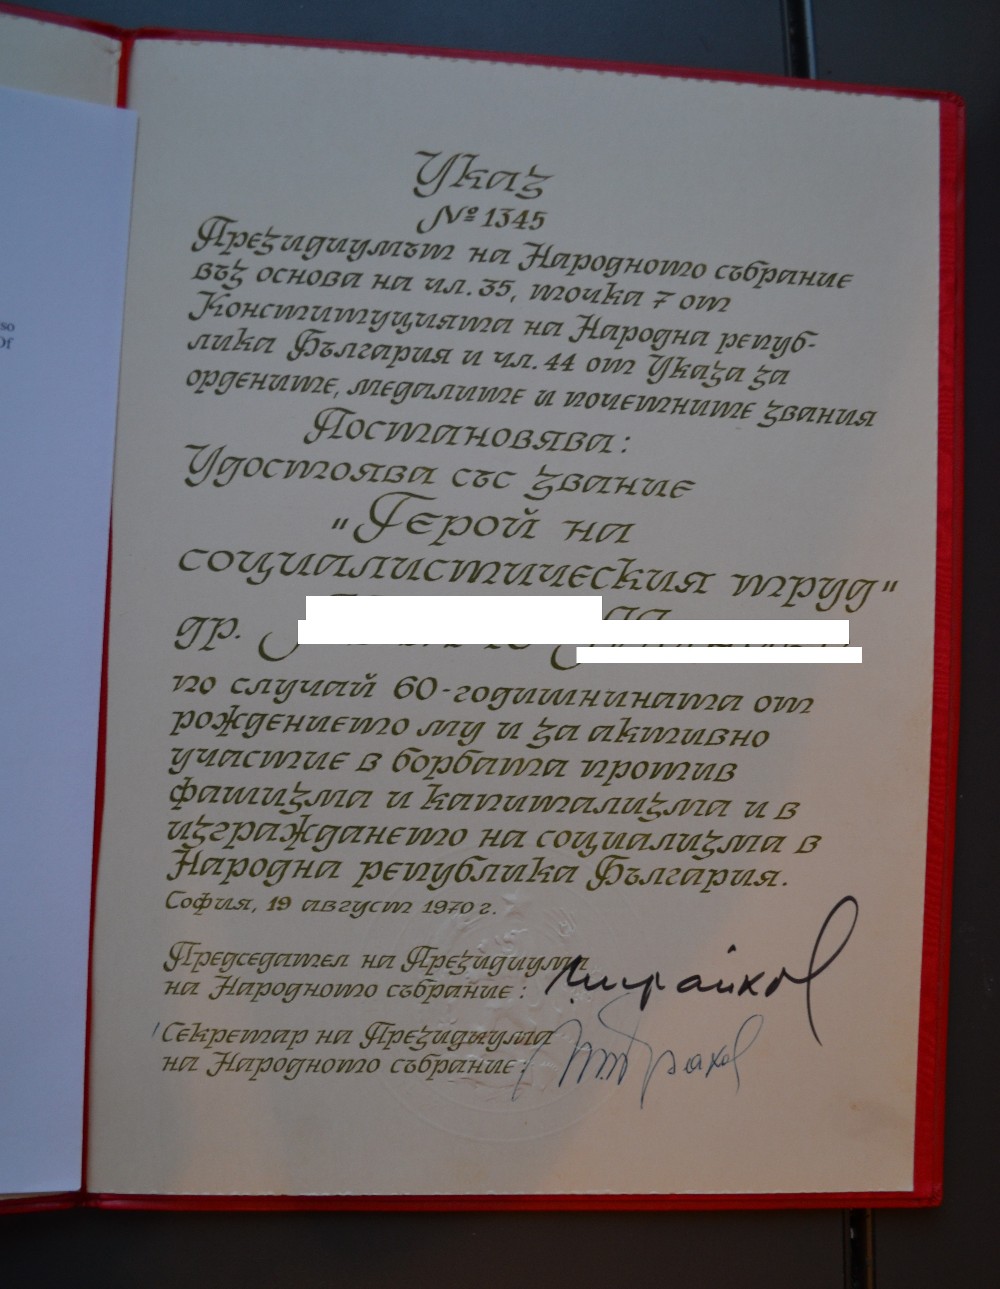 so
Of
Указ
№ 1345
Президиумът на Народното събрание
въз основа на чл. 35, точка 7 от
Конституцията на Народна репуб-
лика България и чл. 44 от Указа за
ордените, медалите и почетните звания
Постановява:
Удостоява със звание
"Герой на
социалистическия труд"
др.
по случай 60-годишнината от
рождението му и за активно
участие в борбата против
фашизма и капитализма и в
изграждането на социализма в
Народна република България.
София, 19 август 1970 г.
Председател на Президиума
на Народното събрание:
Секретар на Президиума
на Народното събрание: